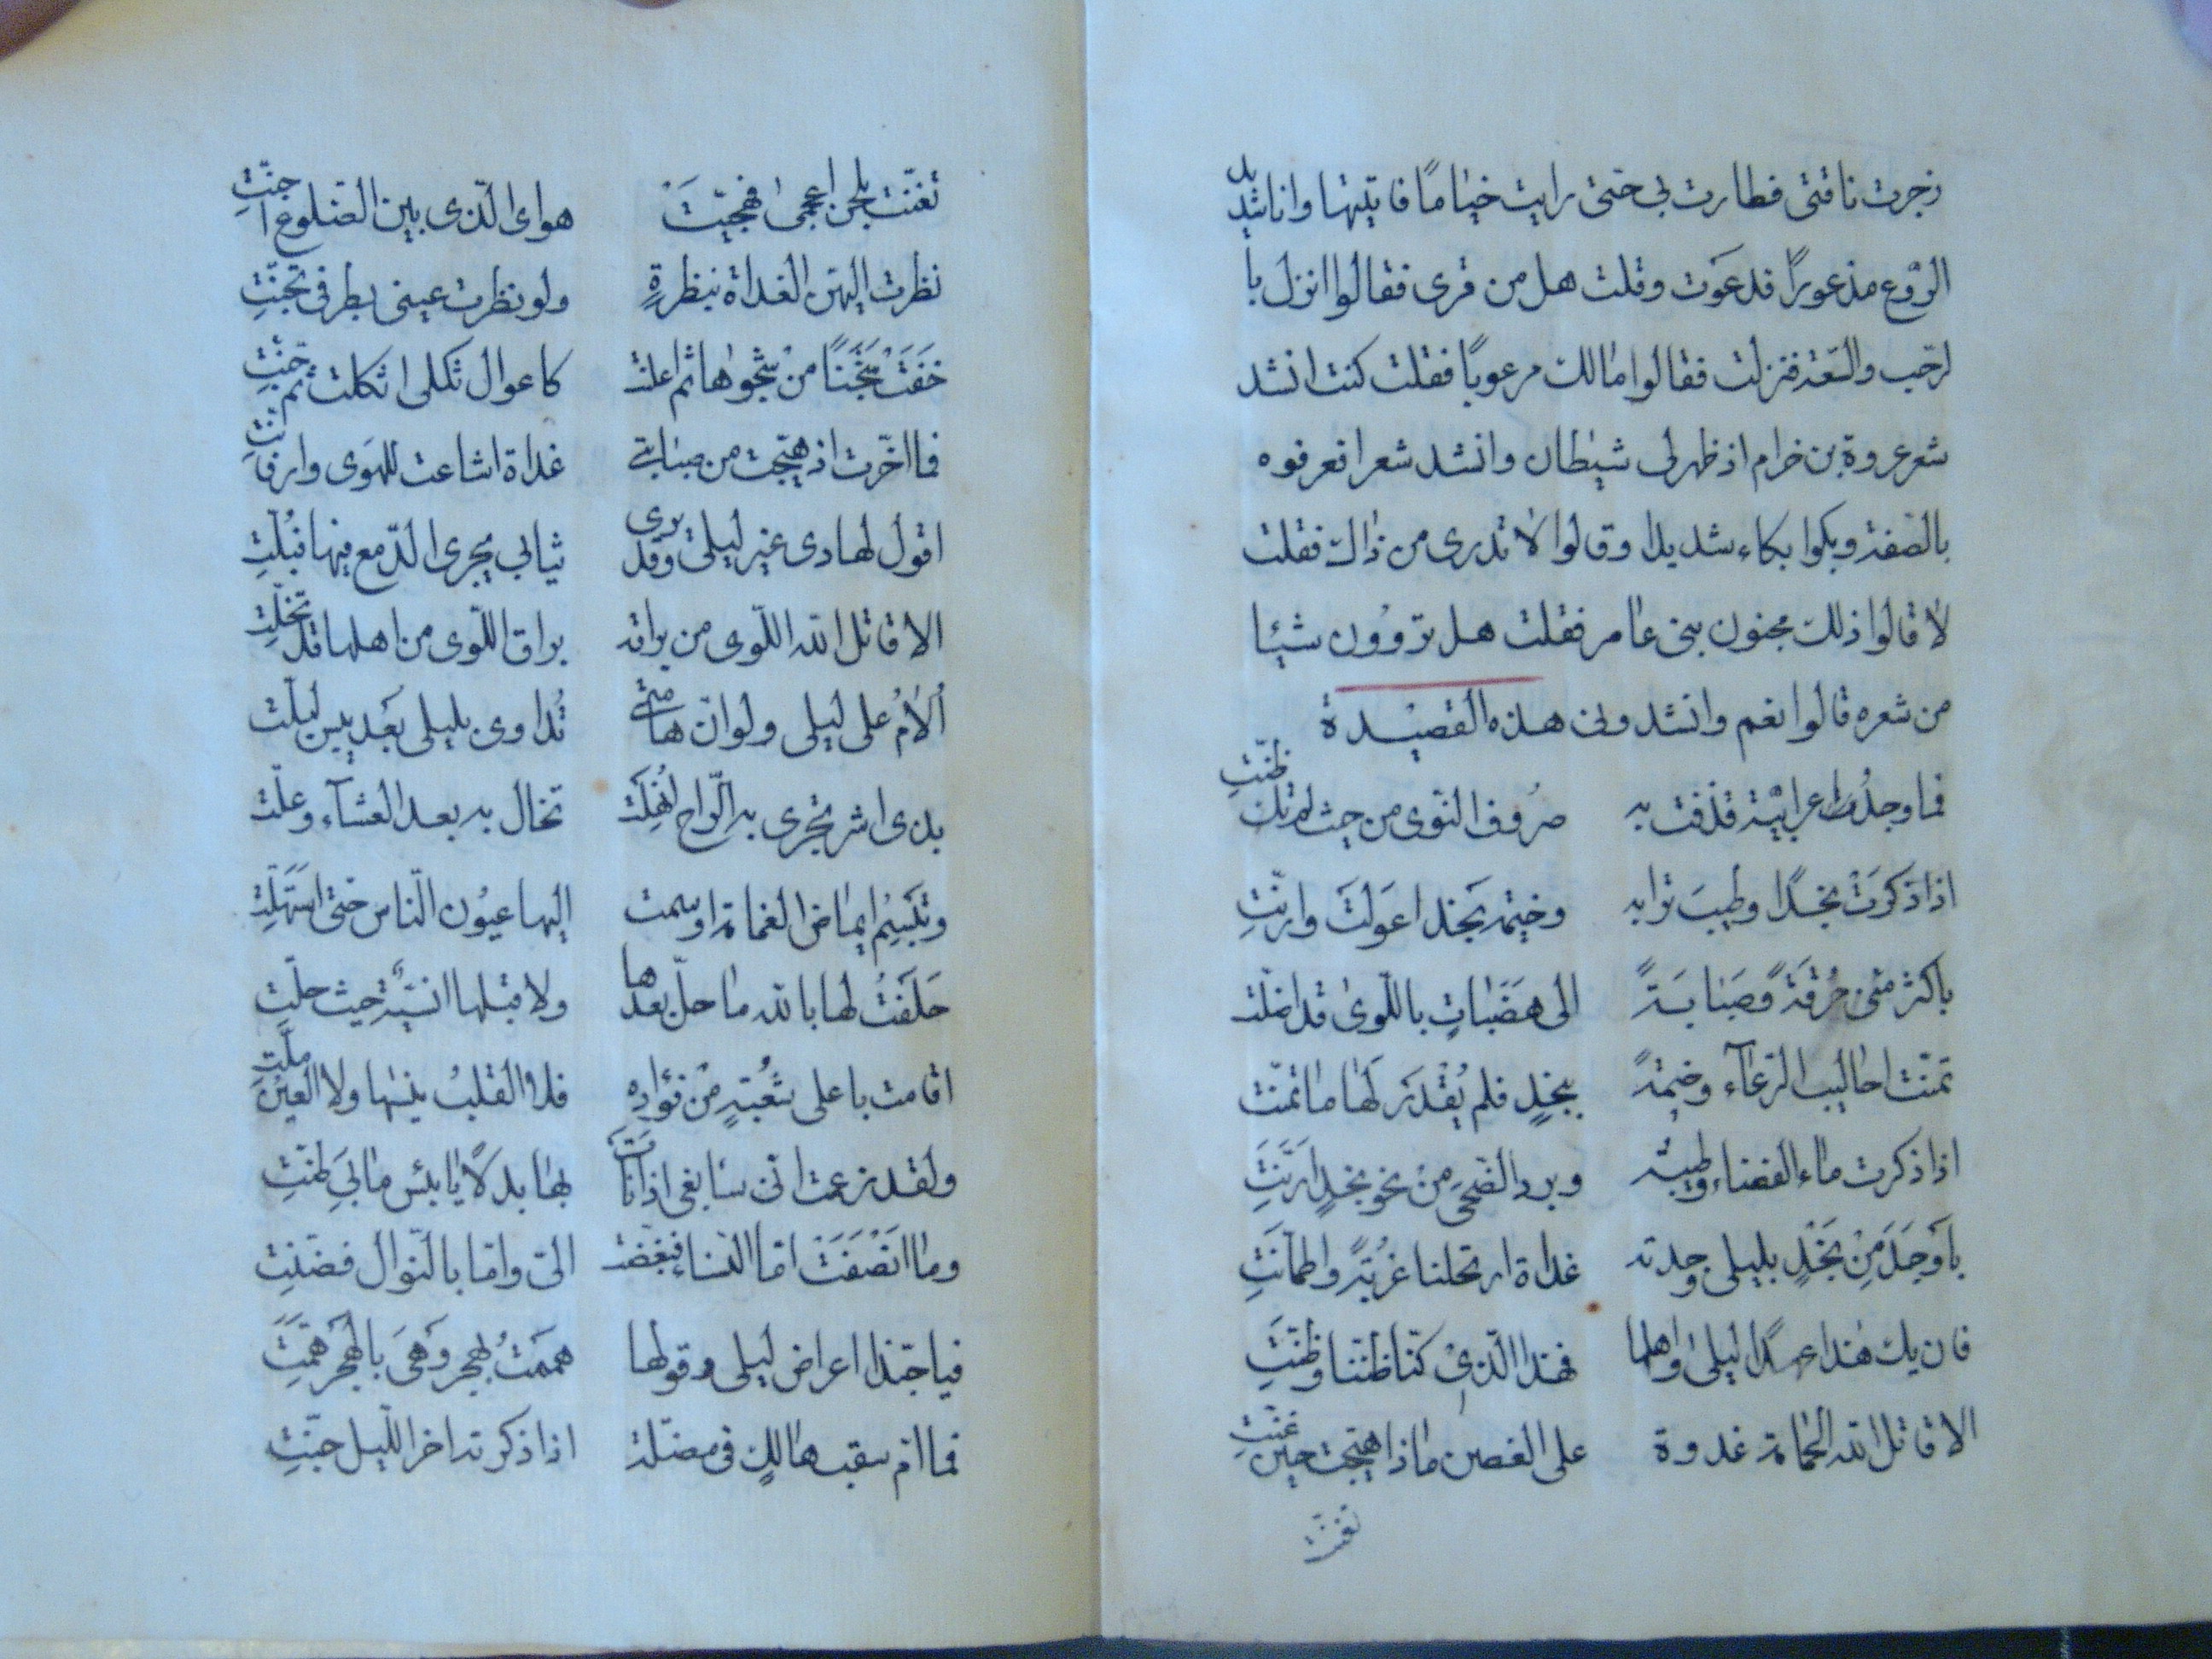 زجرت ناقتی فطارت بی حتی رایت خیاما فاتیتها وانا شدید
الرّوع مذعوراً فدعَوت وقلت هل من قری فقالوا انزل با
لرّحب والسّعة فنزلت فقالوا مالك مرعوباً فقلت كنت انشد
شعر عروة بن خرام اذ ظهر لی شیطان وانشد شعرا فعرفوه
بالصّفة وبكوا بكاء شدیدا وقالوا الا تدری من ذاك فقلت
لا قالوا ذلك مجنون بنی عامر فقلت هل تروُون شیئا
من شعره قالوا نعم وانشدونی هذه القصیدة
فما وجدُ اعرابیّة قذفت به صُروف النّوی من حیث لم تك ظنّتِ
اذا ذكرَتْ نجدًا وطیبَ ترابه وخیمة نجد اعوَلتَ وارنّتِ
باكثر منّی حُرقةً وصَبابةً الی هضَباتٍ باللّوی قد اضلّت
تمنّت احالیب الرّعآء وخیمةً بنجدٍ فلم یُقْدَر لَها ما تمنّت
اذا ذكرت ماء الفضاء وطیبه وبرد الضّحی مِنْ نحو نجدٍ ارَنّتِ
باَوجَدَ مِنْ نَجْدٍ بلیلی وجدته غداة ارتحلنا غُربَةً واطمأنّتِ
فان یك هذا عهد لیلی واهلها فهذا الّذیْ كنّا ظننّا وظنّتِ
الا قاتل الله الحمامة غدوة علی الغصن ماذا هیّجت حین غنّتِ
تغنّت
تغنّت بلحن اعجمی فهیّجتَ هوای الّذی بین الضلوع اجنّتِ
نظرت الیهن الغداة بنظرةٍ ولو نظرت عینی بطرفی تجنّتِ
خفَتْ شَجَنًا منْ شجوها ثم اعلنت كاعوال ثكلی اثكلت ثم حنّتِ
فما اخّرت اذ هیّجت من صبابتی غداة اشاعت للهَوی وارفأنتِ
اقول لهادی عیر لیلی وقد یری ثیابی یجری الدّمع فیها فبُلّتِ
الا قاتل الله اللّوی من براقه براق اللّوی من اهلها قد تخلّتِ
اُلامُ علی لیلی ولو انّ هامتی تُداوی بلیلی بَعد یبس لبلّت
بذی اشر تجری به الرّاح اُنهِلَتْ تخال به بعد العشآء وعلّت
وتَبسِمُ ایماض الغمامة اوسمت الیها عیُون النّاس حتی استَهَلّتِ
حَلَفتُ لها بالله ما حلّ بعدها ولا قبلها انسیّة حیث حلّتِ
اقامت باعلی شُعْبَةٍ مِنْ فؤادِه فلا القلبُ ینسٰها ولا العیْن ملّتِ
ولقد زعمت انّی سابغی اذا نأت بها بدلًا یا بئس ما بی ظنّتِ
وما انصَفَتْ امّا النّساء فبغّضت الیّ وامّا بالنّوال فضنّتِ
فیا حبّذا اعراض لیلی وقولها هممتُ بهجرٍ وَهیَ بالهَجر همَّتِ
فما ام سقب هالك فی مضلّة اذا ذكرته اخر اللّیل حنّتِ